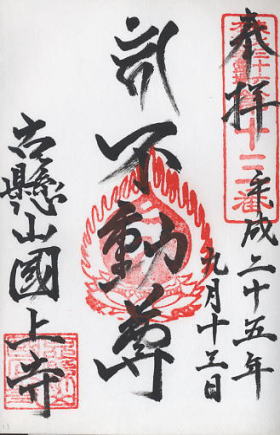 奉拝
平成二十五年
九月十三日
不動尊
古懸山國上寺